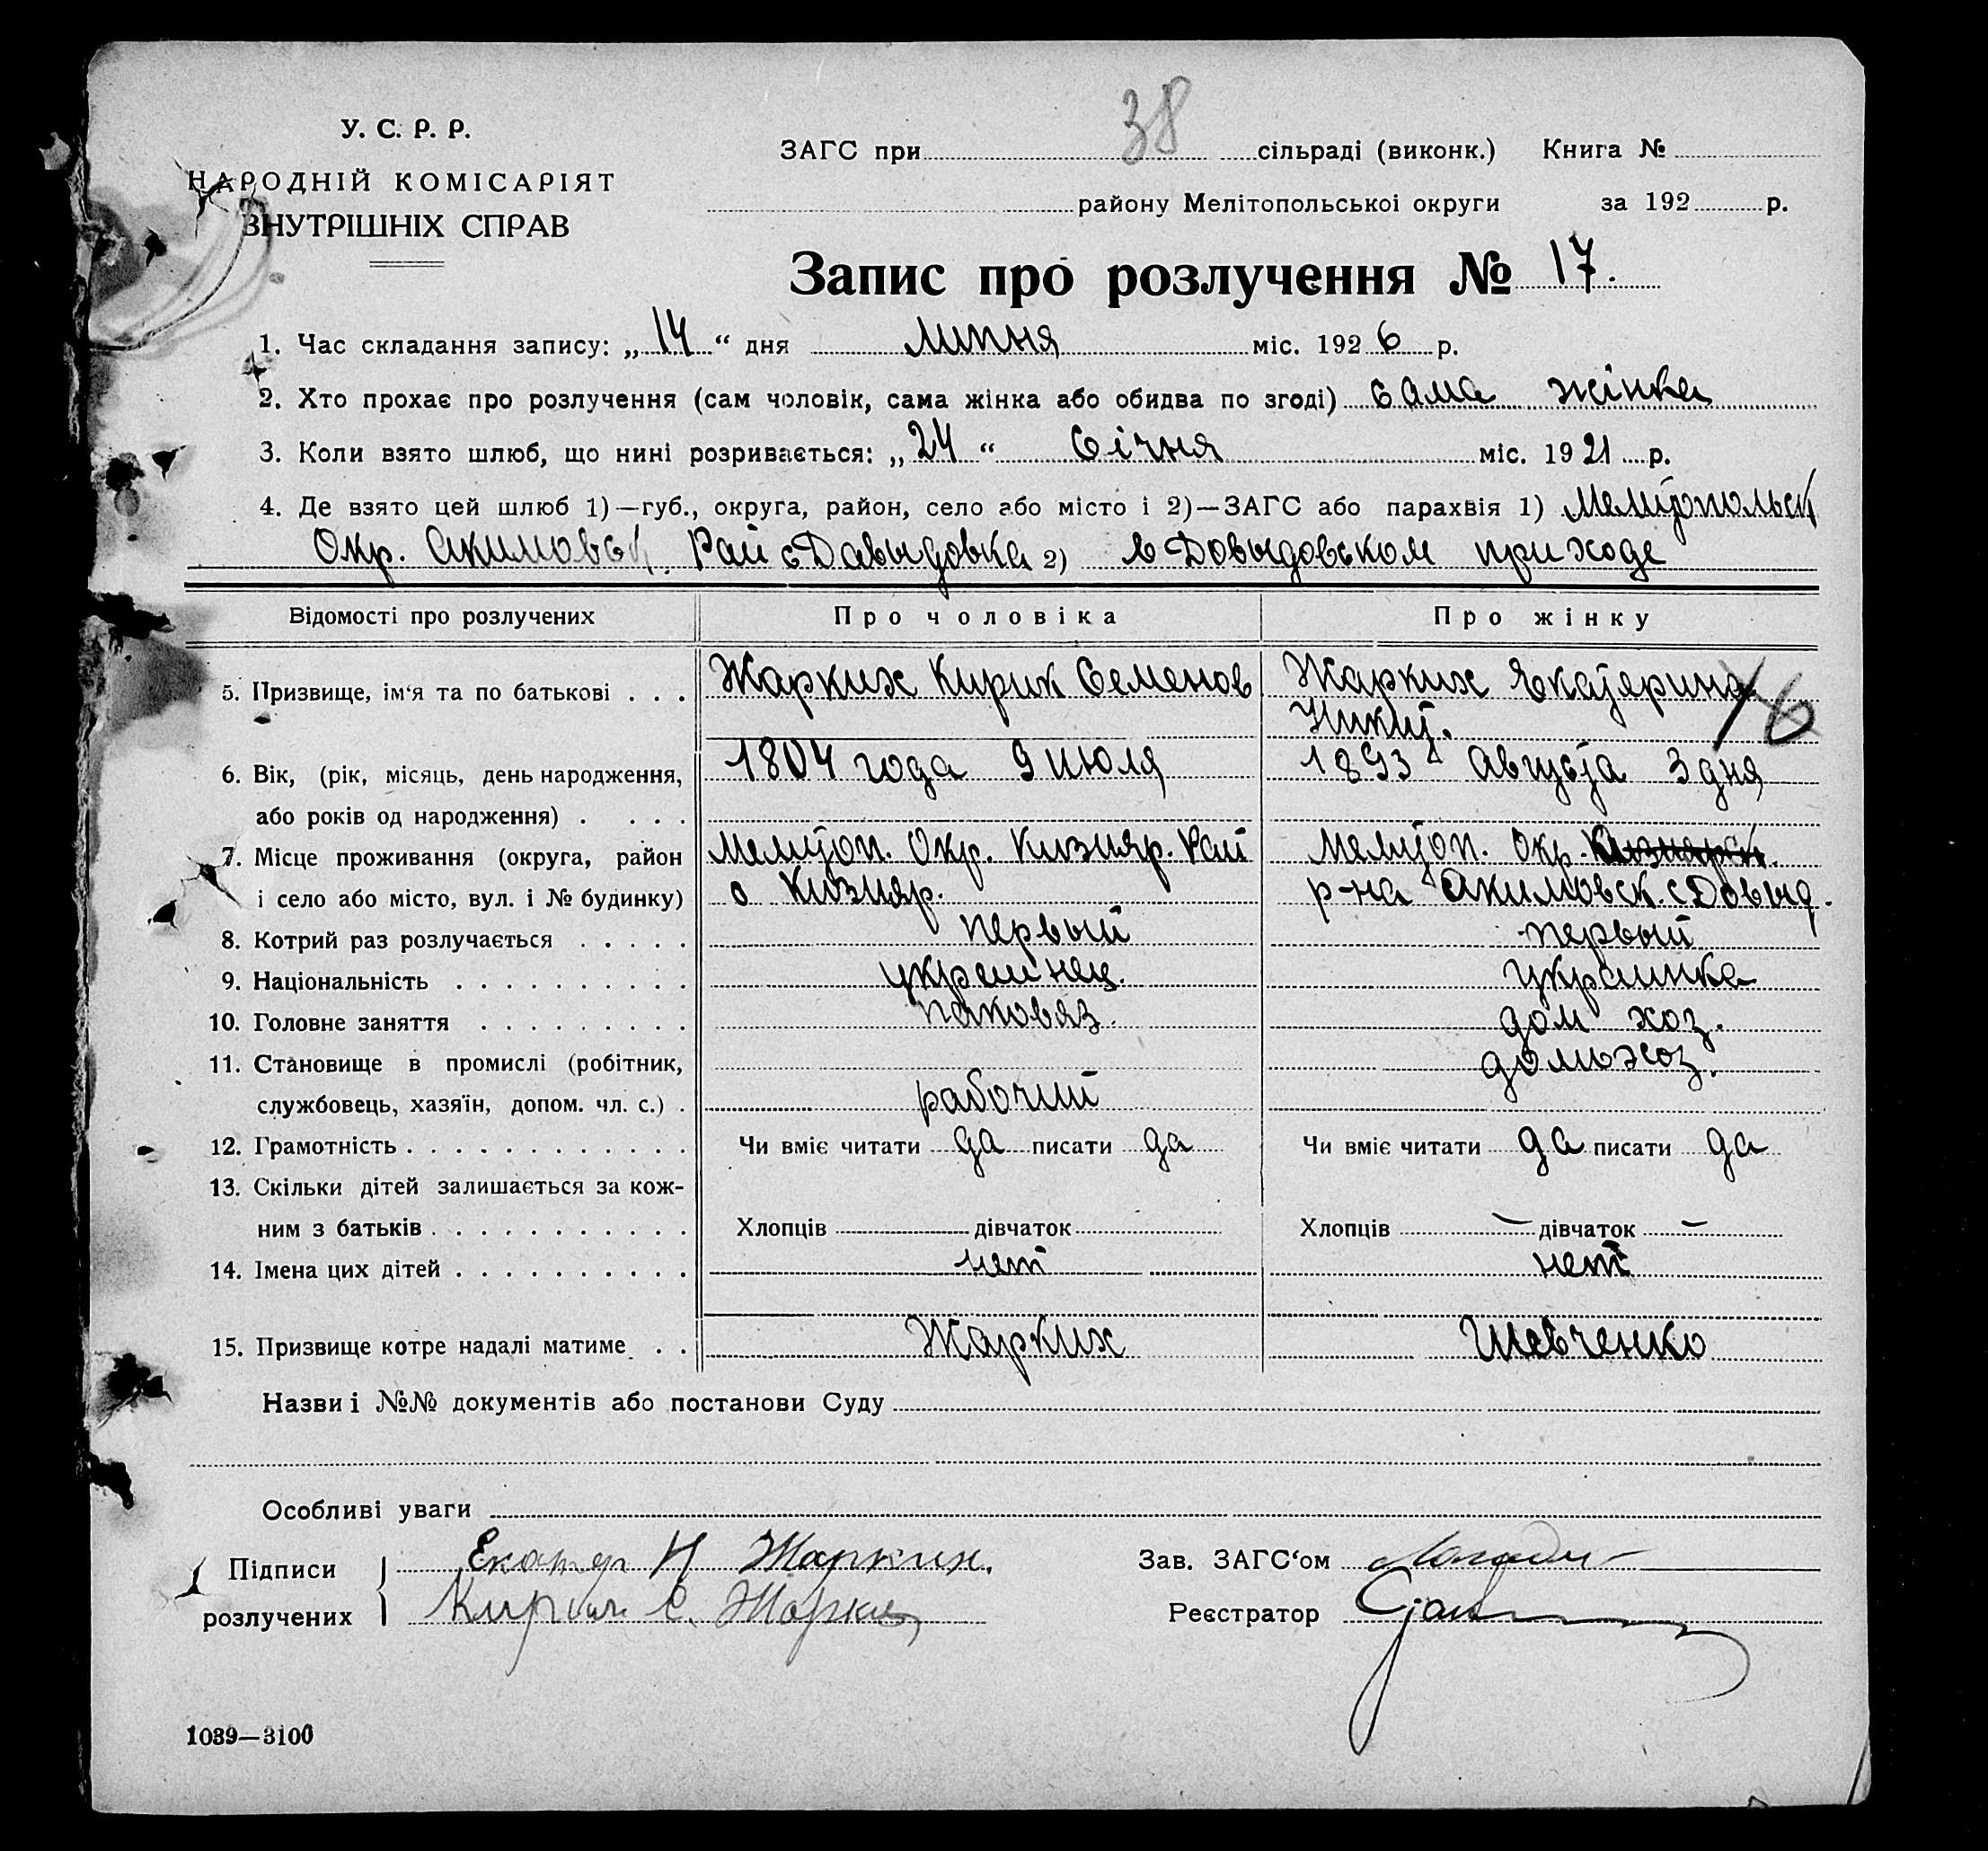 У. С. Р. Р.
НАРОДНІЙ КОМІСАРІЯТ
ВНУТРІШНІХ СПРАВ
38
ЗАГС при сільраді (виконк.) Книга №
району Мелітопольської округи за 192 р.
Запис про розлучення № 17.
1. Час складання запису: „14“ дня липня міс. 1926 р.
2. Хто прохає про розлучення (сам чоловік, сама жінка або обидва по згоді) сама жінка
3. Коли взято шлюб, що нині розривається: „24“ Січня міс. 1921 р.
4. Де взято цей шлюб 1)—губ., округа, район, село або місто і 2)—ЗАГС або парахвія 1) Мелитопольск
Окр. Акимовск. Рай с Давыдовка 2) в Довыдовском приходе
Відомості про розлучених Про чоловіка Про жінку
5. Призвище, ім‘я та по батькові . . . Жарких Кирик Семенов Жарких Екатярина
Никит. 16
6. Вік, (рік, місяць, день народження, 1804 года 9 июля 1893 Августа 3 дня
або років од народження) . . . .
7. Місце проживання (округа, район Мелитоп. Окр. Кизияр. Рай Мелитоп. Окр.
і село або місто, вул. і № будинку) с Кизияр. р-на Акимовск. с Довыд.
8. Котрий раз розлучається . . . . . первый первый
9. Національність . . . . . . . . . . украинец. Украинка
10. Головне заняття . . . . . . . . . дом хоз.
11. Становище в промислі (робітник, домохоз.
службовець, хазяїн, допом. чл. с.) . рабочий
12. Грамотність . . . . . . . . . . . . Чи вміє читати да писати да Чи вміє читати да писати да
13. Скільки дітей залишається за кож-
ним з батьків . . . . . . . . . . . Хлопців дівчаток Хлопців — дівчаток —
14. Імена цих дітей . . . . . . . . . . нет нет
15. Призвище котре надалі матиме . . Жарких Шевченко
Назви і №№ документів або постанови Суду
Особливі уваги
Підписи Екатер Н Жарких. Зав. ЗАГС‘ом
розлучених С. Жарких Реєстратор
1039—3100